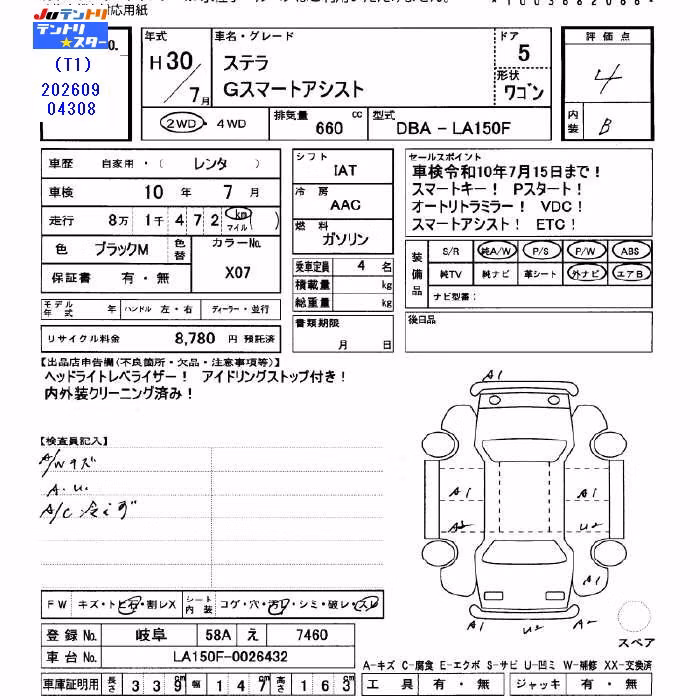 応用紙
JUテントリ
テントリ
★スター
(T1)
202609
04308
No.
年式
H30/7月
車名・グレード
ステラ
Gスマートアシスト
ドア
5
形状
ワゴン
評価点
4
内装
B
2WD・4WD
排気量
660 cc
型式
DBA - LA150F
車歴 自家用・( レンタ )
車検 10 年 7 月
走行 8万 1千 4 7 2 km マイル ( )
色 ブラックM
色替
カラーNo.
X07
保証書 有・無
モデル年式 年 ハンドル 左・右 ディーラー・並行
リサイクル料金 8,780 円 預託済
シフト
IAT
冷房
AAC
燃料
ガソリン
乗車定員 4 名
積載量 kg
総重量 kg
書類期限
月 日
セールスポイント
車検令和10年7月15日まで!
スマートキー! Pスタート!
オートリトラミラー! VDC!
スマートアシスト! ETC!
装備品
S/R 純A/W P/S P/W ABS
純TV 純ナビ 革シート 外ナビ エアB
ナビ型番:
後日品
【出品店申告欄(不良箇所・欠品・注意事項等)】
ヘッドライトレベライザー! アイドリングストップ付き!
内外装クリーニング済み!
【検査員記入】
A/Wキズ
A.U.
A/C 冷えず
A1
A1
A1
A2
U2
A1
U2
A2
スペア
FW キズ・トビ石・割レX
シート内装 コゲ・穴・汚レ・シミ・破レ・スレ
登録No. 岐阜 58A え 7460
車台No. LA150F-0026432
A-キズ C-腐食 E-エクボ S-サビ U-凹ミ W-補修 XX-交換済
車庫証明用 長さ 3 3 9 cm 幅 1 4 7 cm 高さ 1 6 3 cm
工具 有・無 ジャッキ 有・無